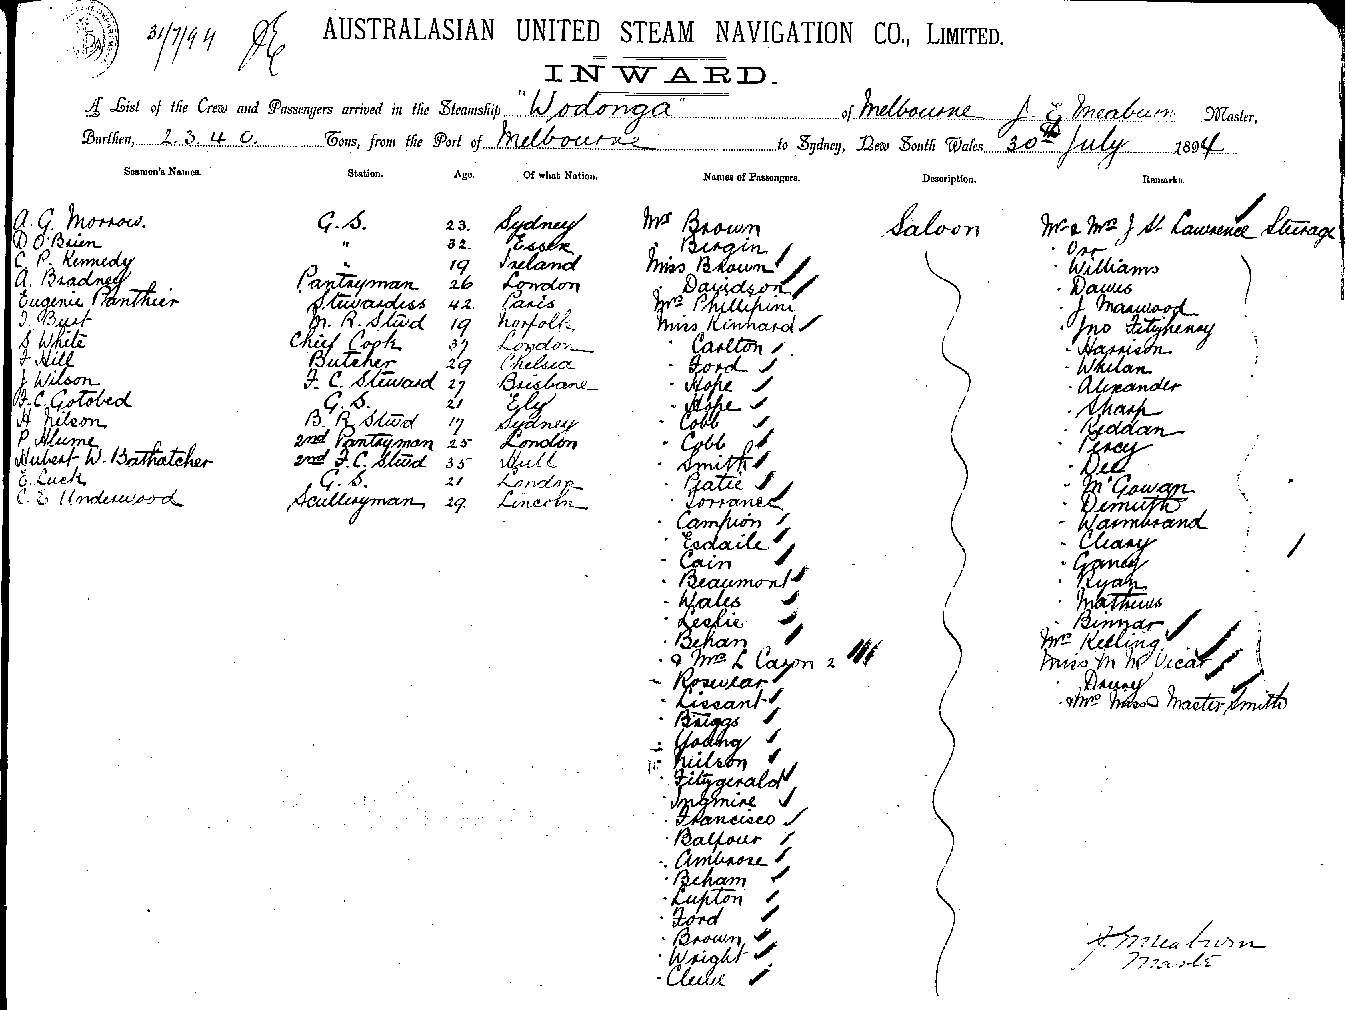 31/7/94
AUSTRALASIAN UNITED STEAM NAVIGATION CO., LIMITED.
INWARD.
A List of the Crew and Passengers arrived in the Steamship "Wodonga" of Melbourne J. E. Meaburn Master,
Burthen, 2.3.4.0. Tons, from the Port of Melbourne to Sydney, New South Wales, 30th July 1894
Seamen's Names. Station. Age. Of what Nation. Names of Passengers. Description. Remarks.
A. G. Morrow. G. S. 23. Sydney Mrs Brown Saloon Mr & Mrs J St Lawrence Steerage
D O'Brien " 32. Essex " Bergin " Orr
C. P. Kennedy " 19 Ireland Miss Brown " Williams
A. Bradney Pantryman 26 London " Davidson " Dawes
Eugenie Panthier Stewardess 42. Paris Mrs Phillipini " J Marwood
J. Bust M. R. Stwd 19 Norfolk Miss Kinnard " Jno Fitzhenry
S White Chief Cook 37 London " Carlton " Harrison
F Hill Butcher 29 Chelsea " Ford " Whelan
J Wilson F. C. Steward 27 Brisbane " Hope " Alexander
F. C. Gotobed G. S. 21 Ely " Hope " Sharp
H Nelson B. R. Stwd 17 Sydney " Cobb " Keddan
P. Hume 2nd Pantryman 25 London " Cobb " Percy
Hubert W. Bathatcher 2nd F. C. Stwd 35 Hull " Smith " Dee
E. Luck G. S. 21 London " Batie " McGowan
C. E. Underwood Sculleryman 29. Lincoln " Torrance " Demuth
" Campion " Warmbrand
" Esdaile " Cleary
" Cain " Ganey
" Beaumont " Ryan
" Wales " Mathews
" Leslie " Binnar
" Behan Mrs Keeling
" & Mrs L Cason 2 Miss M McVicar
" Rosevear " Drury
" Lissant " & Mrs Miss & Master Smith
" Briggs
" Young
" Neilson
" Fitzgerald
" Ingmire
" Francisco
" Balfour
" Ambrose
" Beham
" Lupton
" Ford
" Brown
" Wright
" Clewe
J. E. Meaburn
Master